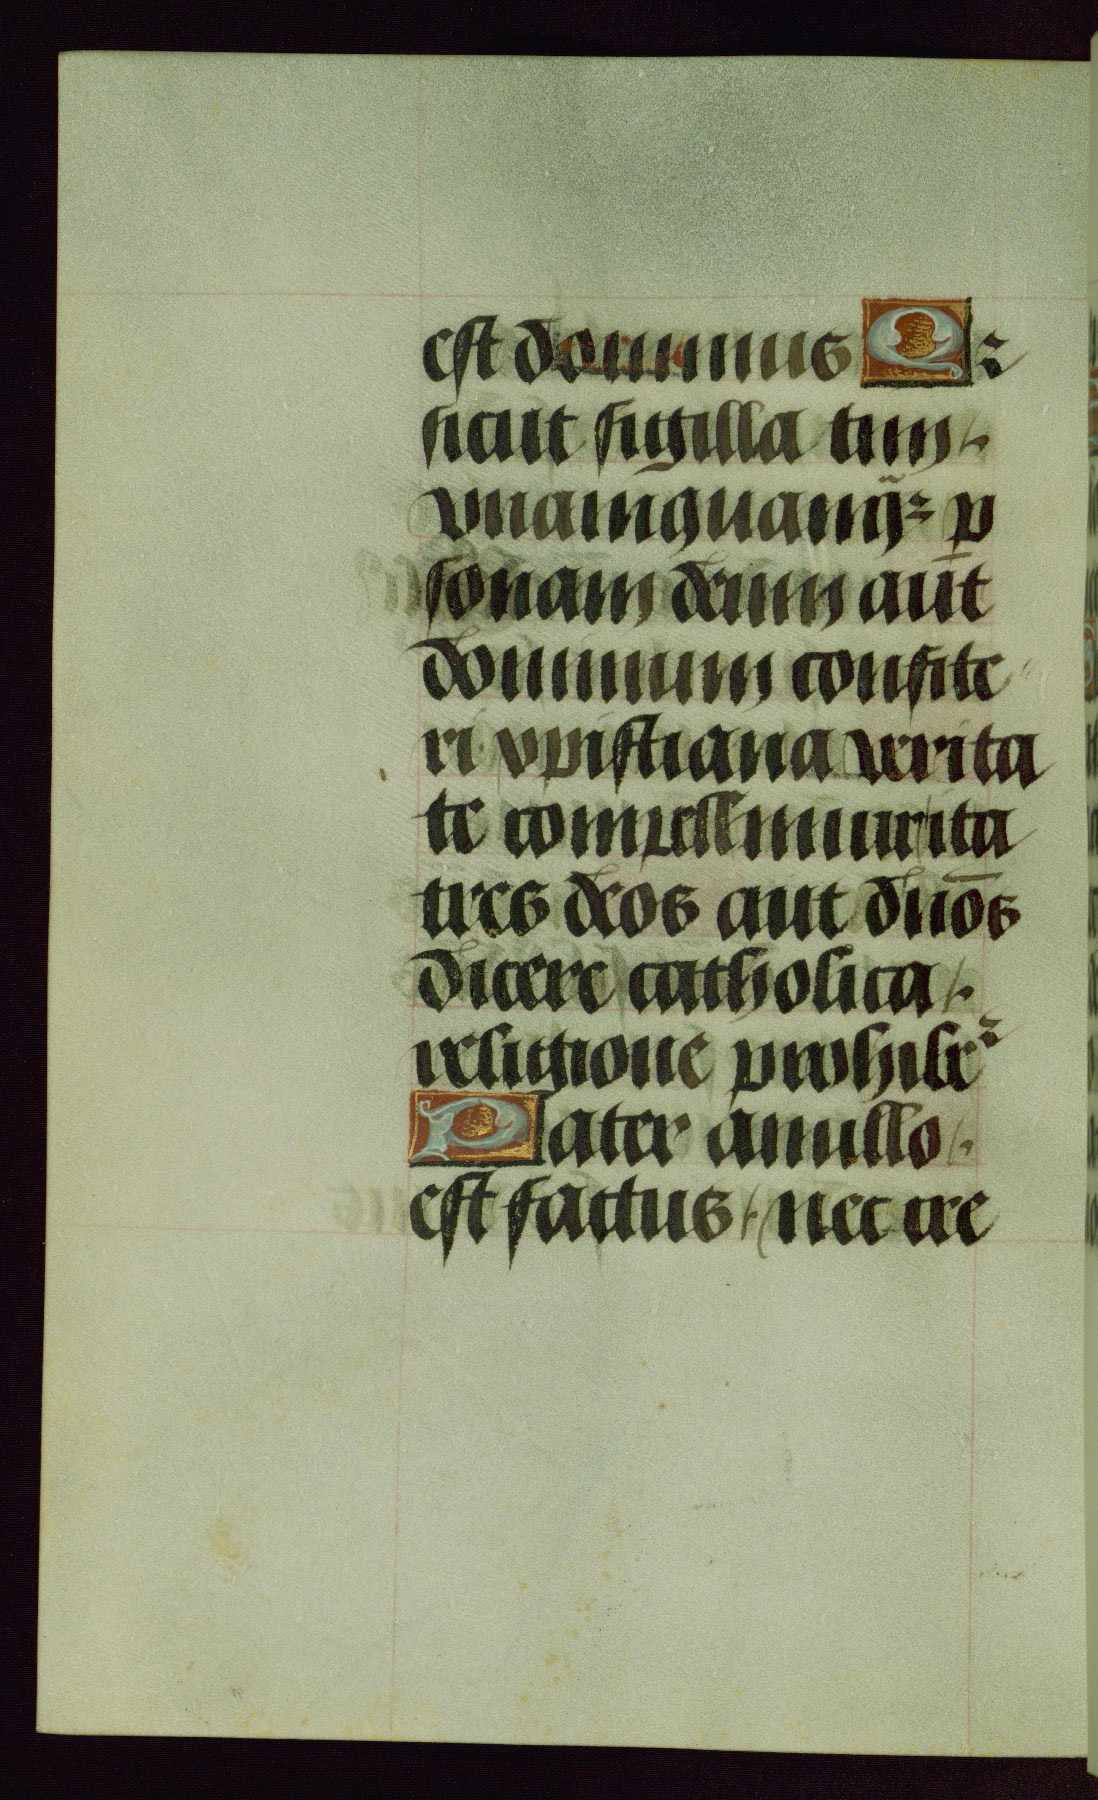 est dominus Qꝛ
sicut sigilla tim /.
vnamquamq̃ꝫ ꝑ
sonam deum aut̅
dominum confite
ri xpistiana verita
te compellimur ita
tres deos aut dn̅os
dicere catholica /.
religione prohibeꝛ
Pater a nullo /.
est factus /. nec cre